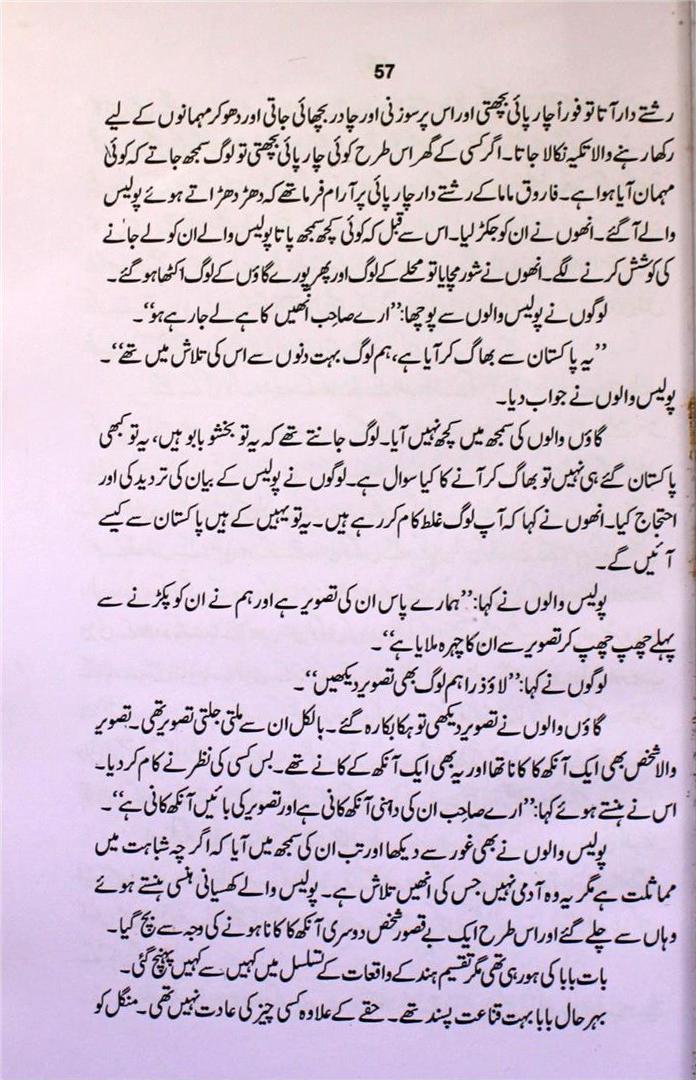 57
رشتے دار آتا تو فوراً چارپائی بچھتی اور اس پر سوزنی اور چادر بچھائی جاتی اور دھو کر مہمانوں کے لیے
رکھا رہنے والا تکیہ نکالا جاتا۔ اگر کسی کے گھر اس طرح کوئی چارپائی بچھتی تو لوگ سمجھ جاتے کہ کوئی
مہمان آیا ہوا ہے۔ فاروق ماما کے رشتے دار چارپائی پر آرام فرما تھے کہ دھڑدھڑاتے ہوئے پولیس
والے آگئے۔ انھوں نے ان کو جکڑ لیا۔ اس سے قبل کہ کوئی کچھ سمجھ پاتا پولیس والے ان کو لے جانے
کی کوشش کرنے لگے۔ انھوں نے شور مچایا تو محلے کے لوگ اور پھر پورے گاؤں کے لوگ اکٹھا ہوگئے۔
لوگوں نے پولیس والوں سے پوچھا: ’’ارے صاحب انھیں کاہے لے جارہے ہو‘‘۔
’’یہ پاکستان سے بھاگ کر آیا ہے، ہم لوگ بہت دنوں سے اس کی تلاش میں تھے‘‘۔
پولیس والوں نے جواب دیا۔
گاؤں والوں کی سمجھ میں کچھ نہیں آیا۔ لوگ جانتے تھے کہ یہ تو بخشو بابو ہیں، یہ تو کبھی
پاکستان گئے ہی نہیں تو بھاگ کر آنے کا کیا سوال ہے۔ لوگوں نے پولیس کے بیان کی تردید کی اور
احتجاج کیا۔ انھوں نے کہا کہ آپ لوگ غلط کام کررہے ہیں۔ یہ تو یہیں کے ہیں پاکستان سے کیسے
آئیں گے۔
پولیس والوں نے کہا: ’’ہمارے پاس ان کی تصویر ہے اور ہم نے ان کو پکڑنے سے
پہلے چھپ چھپ کر تصویر سے ان کا چہرہ ملایا ہے‘‘۔
لوگوں نے کہا: ’’لاؤ ذرا ہم لوگ بھی تصویر دیکھیں‘‘۔
گاؤں والوں نے تصویر دیکھی تو ہکا بکا رہ گئے۔ بالکل ان سے ملتی جلتی تصویر تھی۔ تصویر
والا شخص بھی ایک آنکھ کا کانا تھا اور یہ بھی ایک آنکھ کے کانے تھے۔ بس کسی کی نظر نے کام کردیا۔
اس نے ہنستے ہوئے کہا: ’’ارے صاحب ان کی داہنی آنکھ کانی ہے اور تصویر کی بائیں آنکھ کانی ہے‘‘۔
پولیس والوں نے بھی غور سے دیکھا اور تب ان کی سمجھ میں آیا کہ اگرچہ شباہت میں
مماثلت ہے مگر یہ وہ آدمی نہیں جس کی انھیں تلاش ہے۔ پولیس والے کھسیانی ہنسی ہنستے ہوئے
وہاں سے چلے گئے اور اس طرح ایک بے قصور شخص دوسری آنکھ کا کانا ہونے کی وجہ سے بچ گیا۔
بات بابا کی ہورہی تھی مگر تقسیم ہند کے واقعات کے تسلسل میں کہیں سے کہیں پہنچ گئی۔
بہرحال بابا بہت قناعت پسند تھے۔ حقے کے علاوہ کسی چیز کی عادت نہیں تھی۔ منگل کو